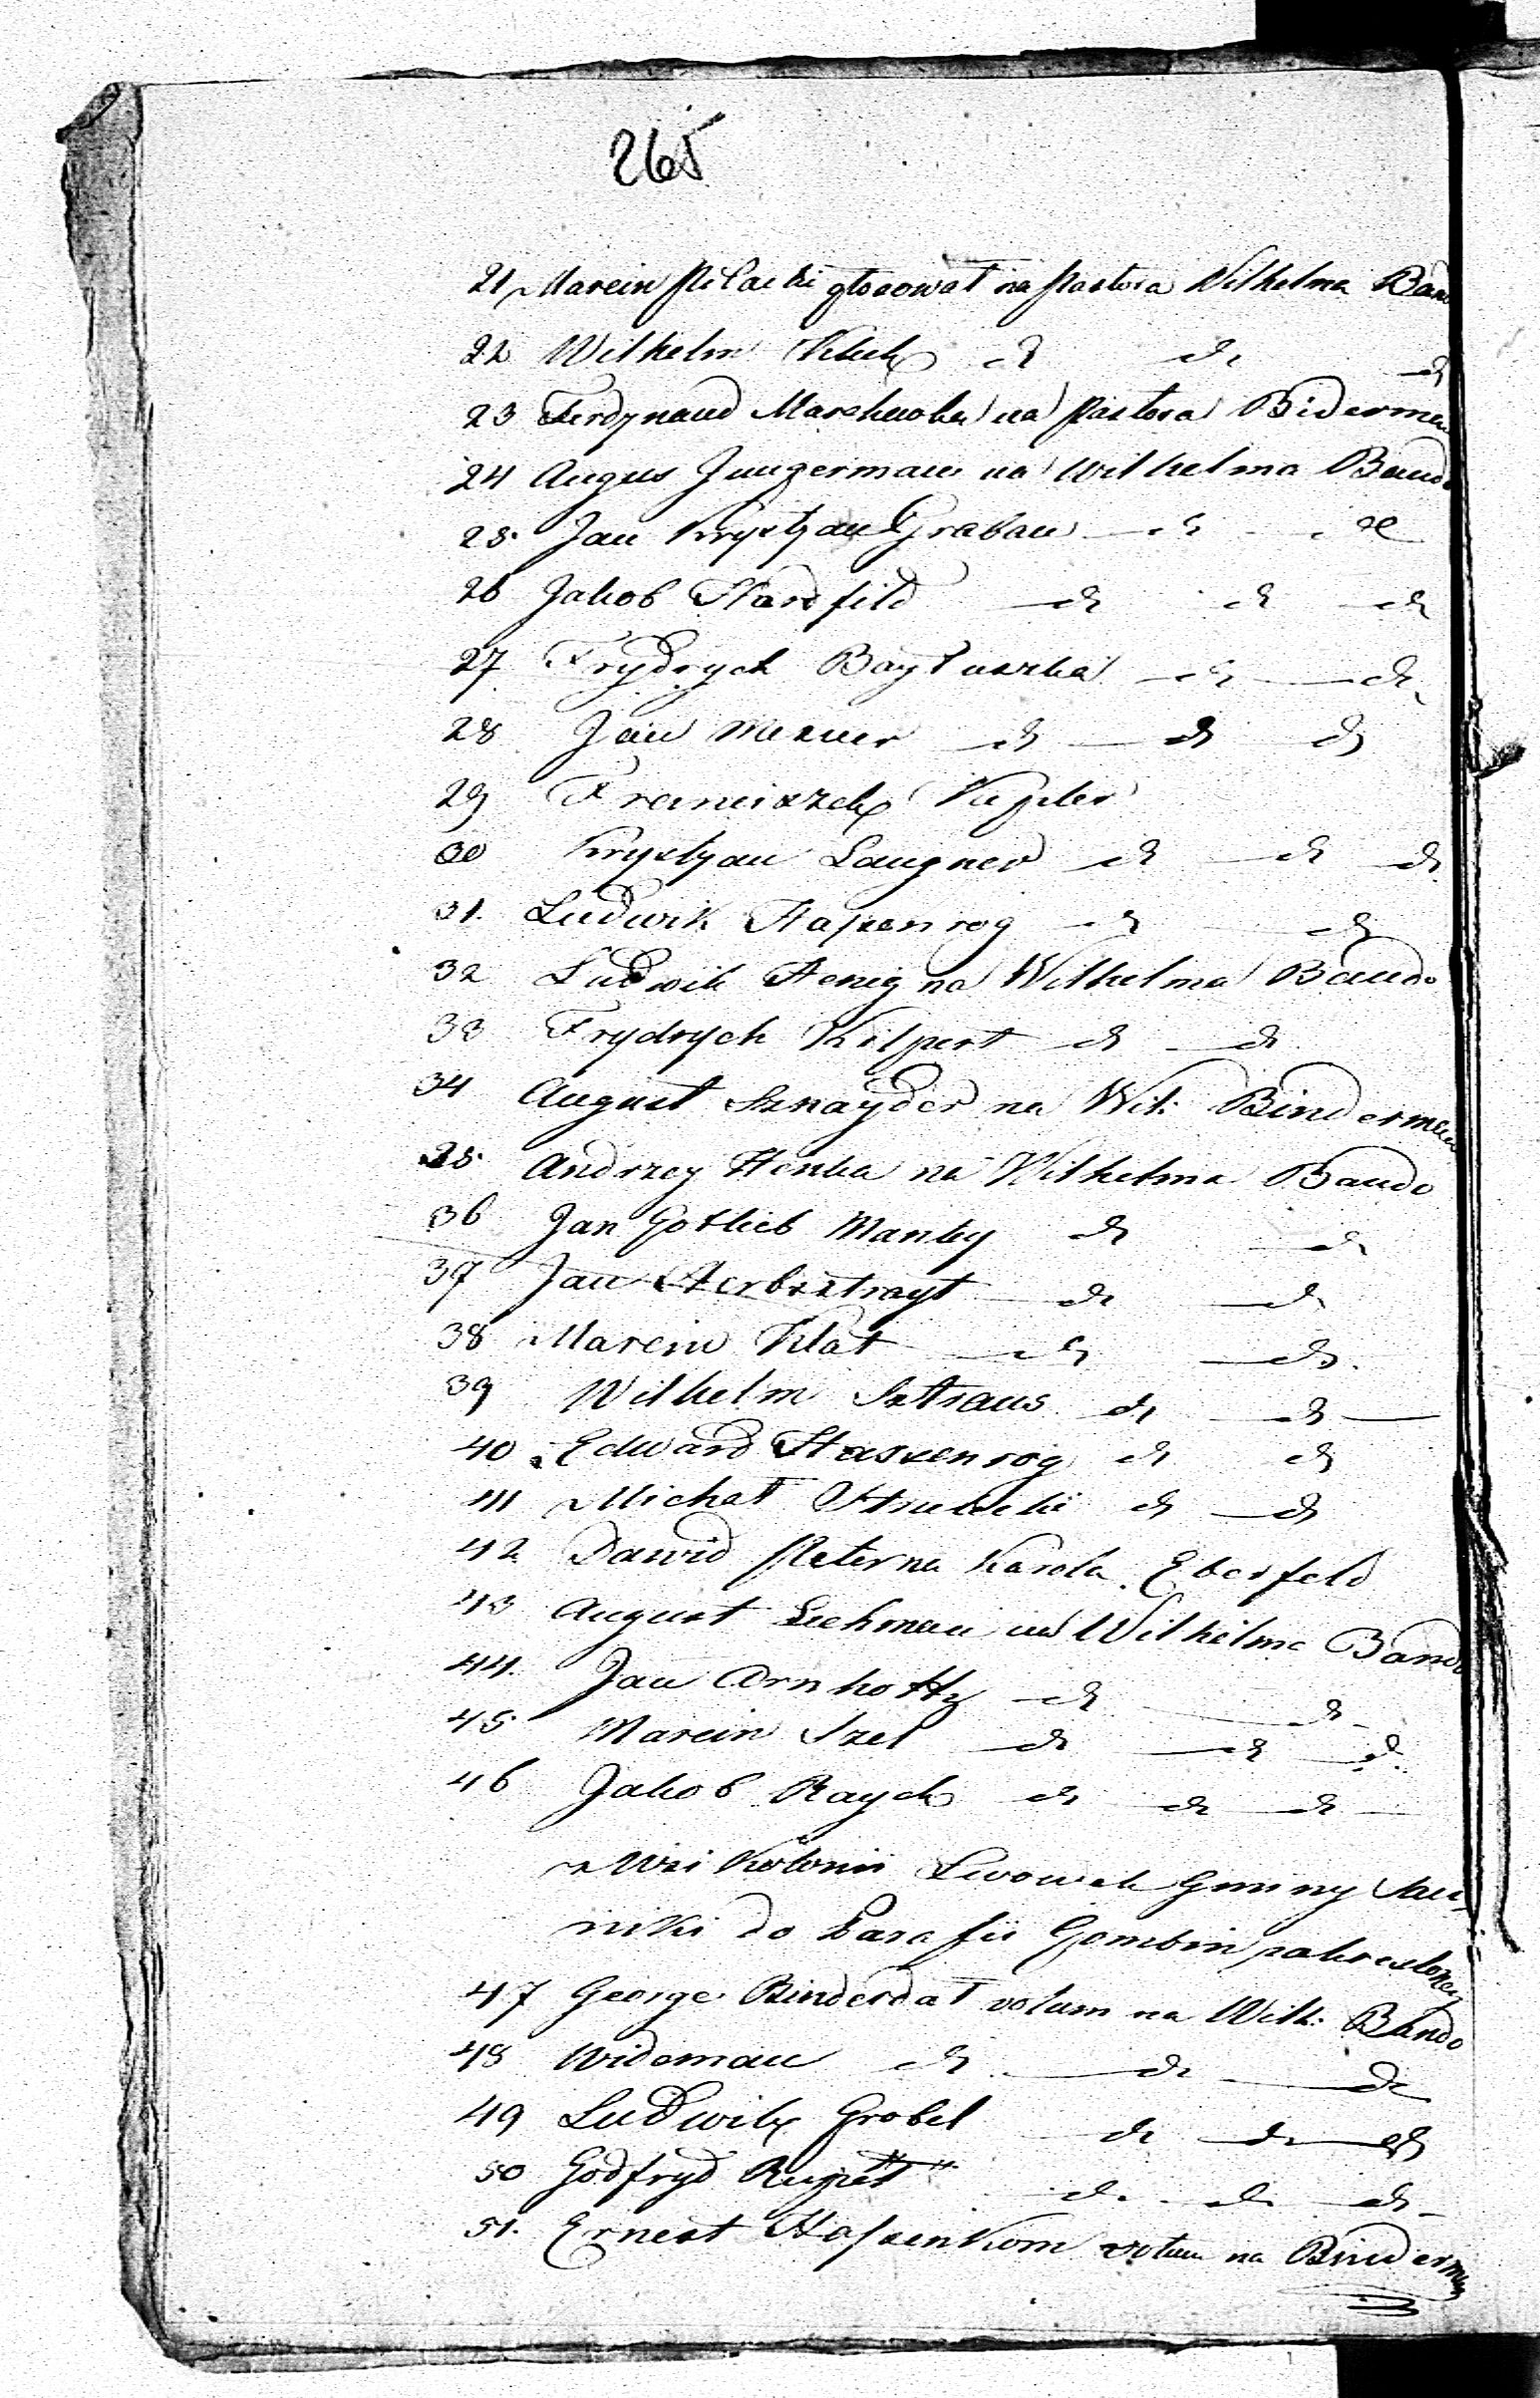 265
21 Marcin Pilacki głosował na Pastora Wilhelma Band
22 Wilhelm Kluk dt dt dt
23 Ferdynand na Pastora Biderman
24 Augus Jungerman na Wilhelma Bando
25. Jan Krystyan Graban dt dt
26 Jakob Hardfild dt dt dt
27 Frydrych Baytuszka dt dt
28 Jan Mezner dt dt dt
29 Franciszek Kegler
30 Krystyan Langner dt dt dt
31. Ludwik Hassenrog dt dt
32 Ludwik Henig na Wilhelma Bando
33 Frydrych Kilpert dt dt
34 August Sznayder na Wil: Binderman
35 Andrzey Henka na Wilhelma Bando
36 Jan Gotlieb Mantey dt dt
37 Jan Herbsztrayt dt dt
38 Marcin Klat dt dt
39 Wilhelm Sztraus dt dt
40 Edward Haszenrog dt dt
41 Michał dt dt
42 Dawid Peter na Karola Eberfeld
43 August Lechman na Wilhelma Bando
44. Jan Arnholtz dt dt
45 Marcin Szel dt dt dt
46 Jakob Raych dt dt dt
z Wsi Kolonii Lwowek Gminy San
niki do Parafii Gombin
47 George Binder dał votum na Wilh: Bando
48 Wideman dt dt dt
49 Ludwik Grobel dt dt dt
50 Godfryd dt dt dt
51. Ernest votum na Binderman